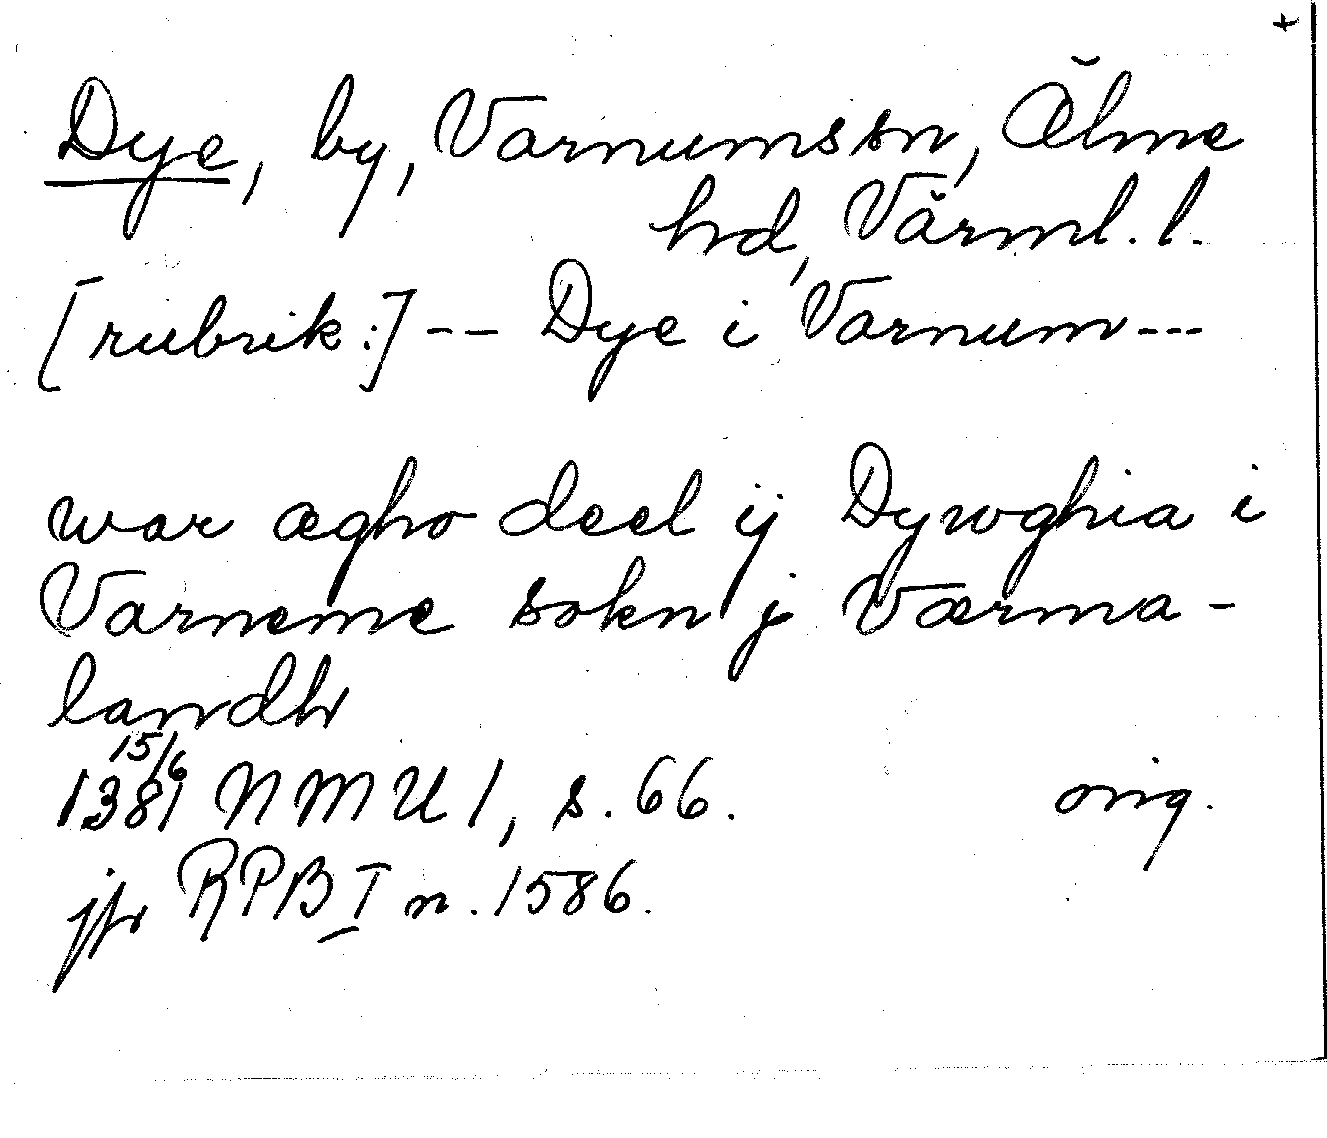 +
Dye, by, Varnums sn, Älme
hd, Värml. l.
[rubrik:] -- Dye i Varnum---
war ægho deel ij Dywghia i
Varneme sokn j Værma-
landh
15/6
1381 NMU 1, s. 66. orig.
jfr RPB I n. 1586.